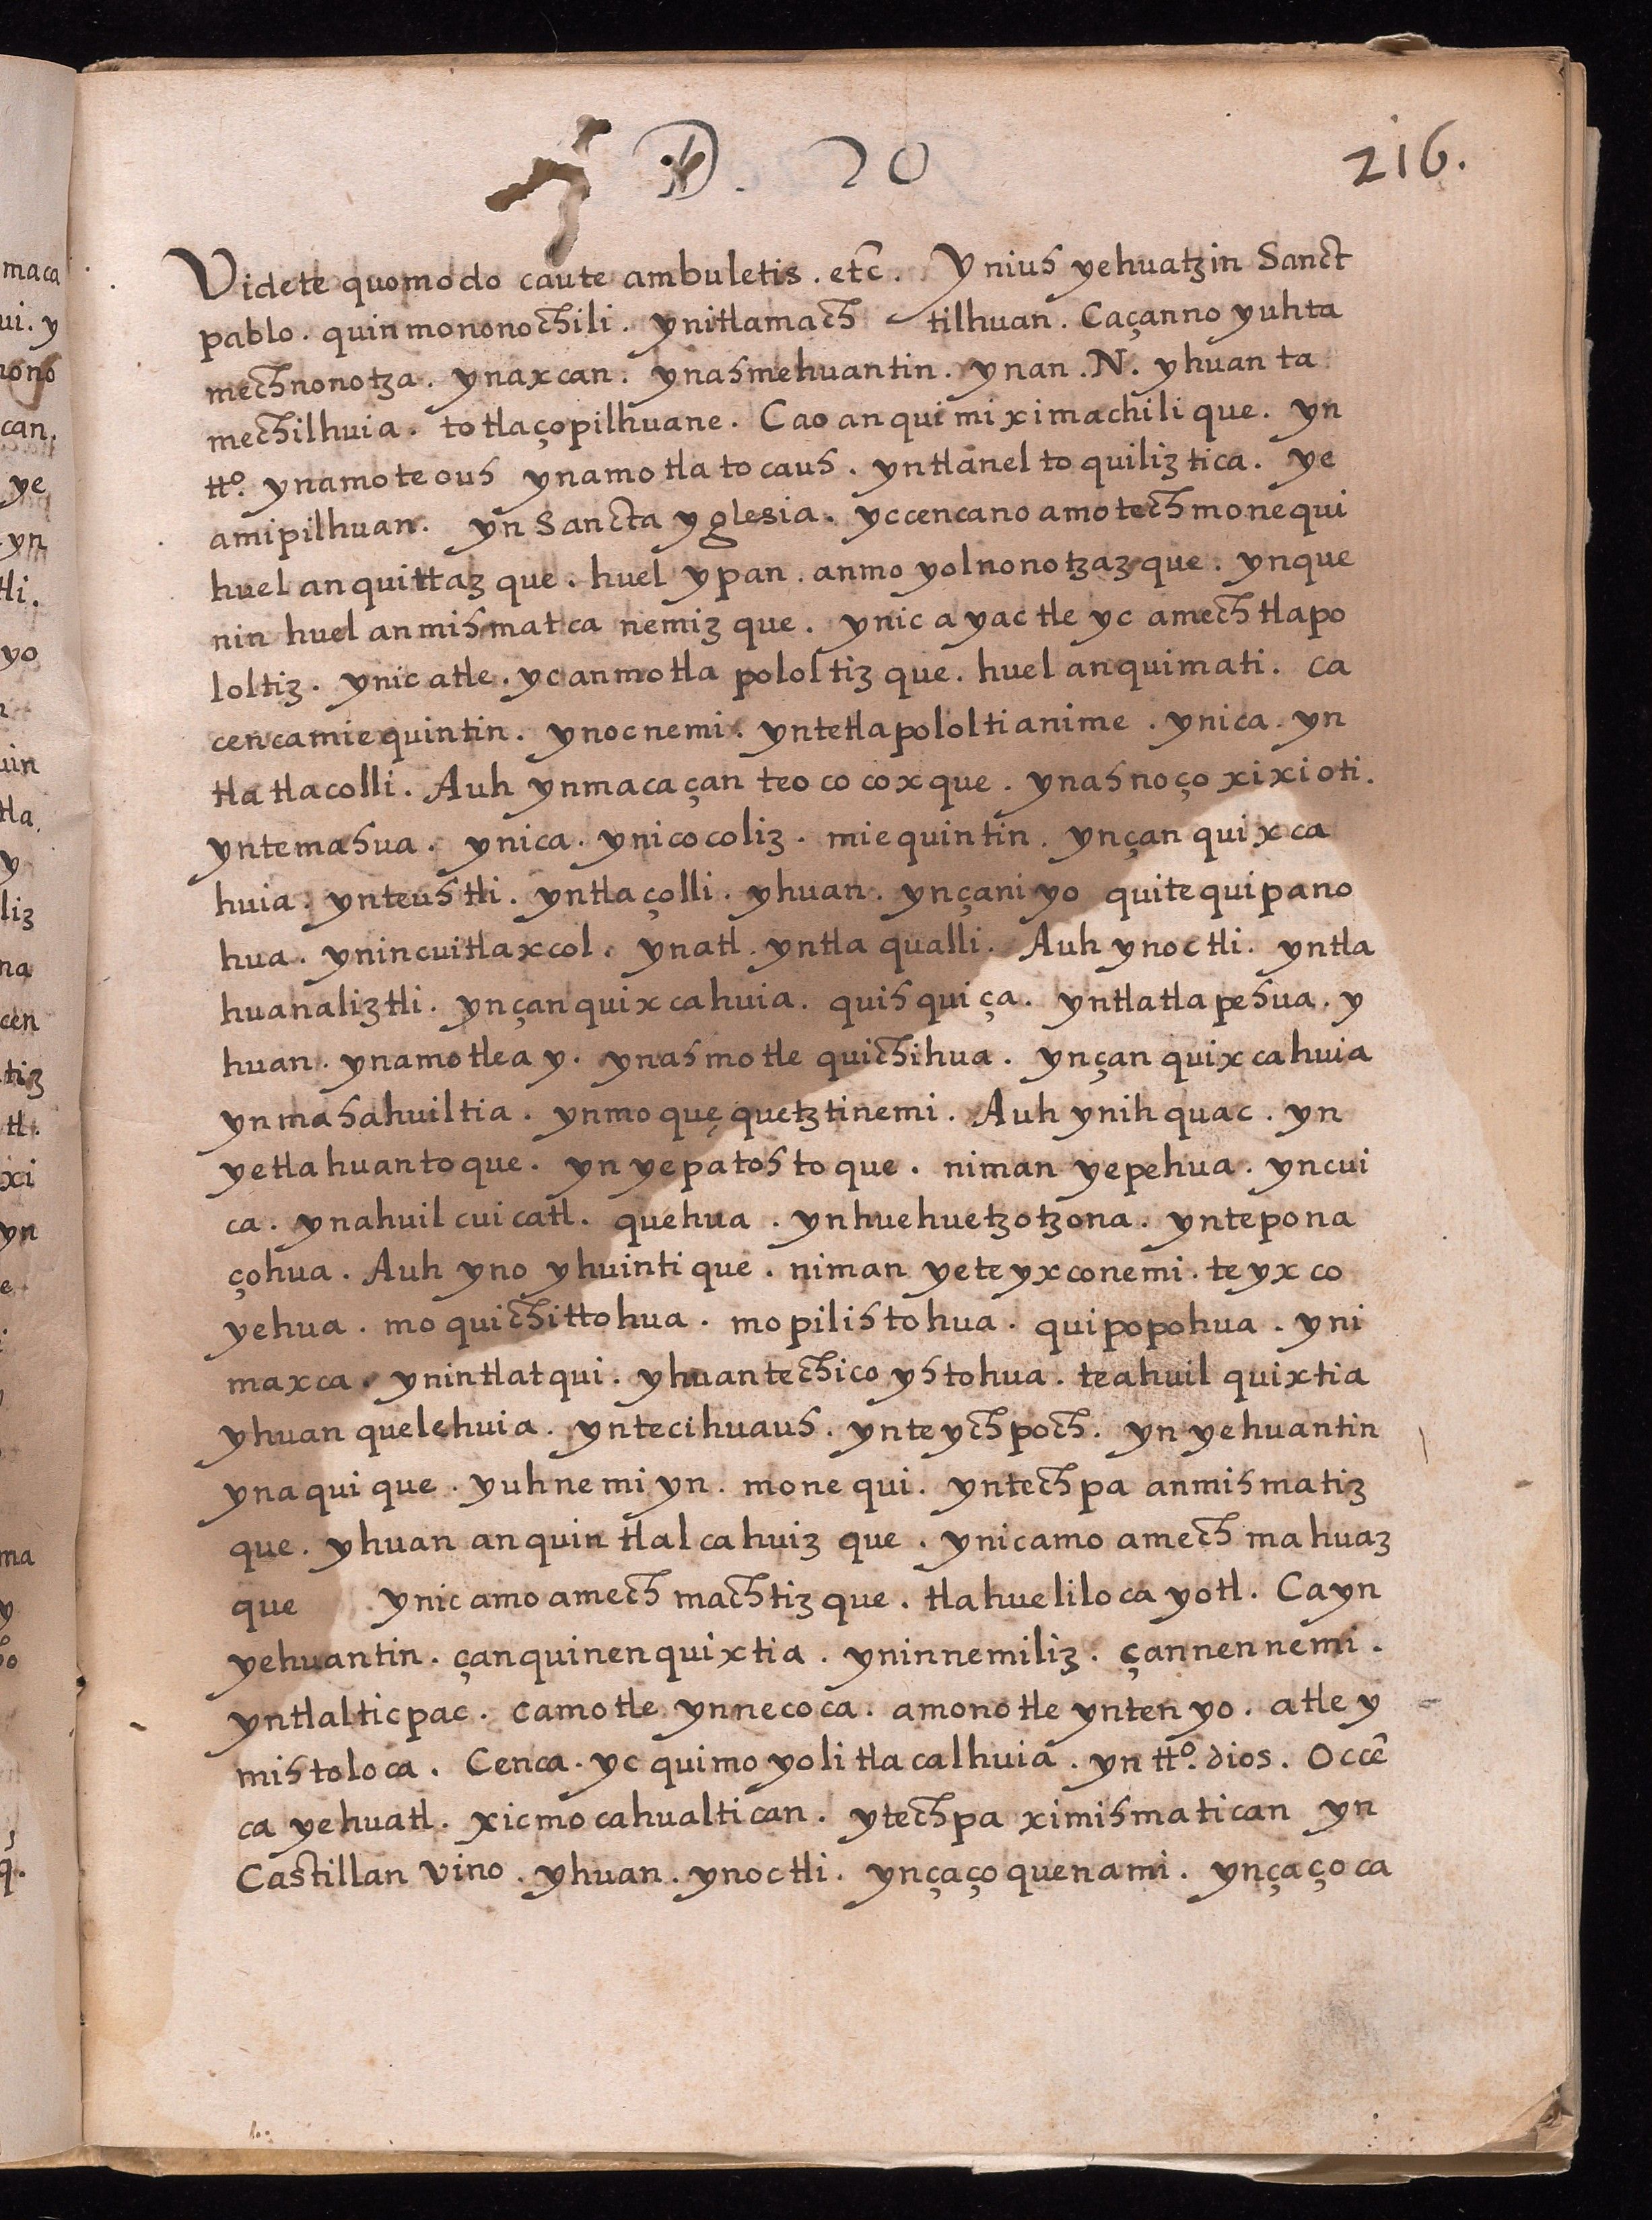 20 216.
Videte quomodo caute ambuletis . etc̄. Yniuh yehuatzin Sanct
pablo . quinmononochili . ynitlamach tilhuan . Caçanno yuhta
mechnonotza . ynaxcan . ynahmehuantin . ynan . N. yhuan ta
mechilhuia . totlaçopilhuane . Cao an qui mi ximachili que . yn
tto. ynamoteouh ynamotlatocauh . yntlanel to quiliz tica . ye
amipilhuan . yn Sancta yglesia . yccencano amotech monequi
huel anquittaz que . huel ypan . anmo yolnonotzaz que . ynque
nin huel anmihmatca nemiz que . ynic ayac tle yc amech tlapo
loltiz . ynic atle . yc anmotla pololtiz que . huel anquimati . ca
cencamiequintin . ynocnemi . yntetlapololtianime . ynica . yn
tlatlacolli . Auh ynmacaçan teococoxque . ynahnoço xixioti .
yntemahua . ynica . ynicocoliz . miequintin . ynçan quixca
huia . ynteuhtli . yntlaçolli . yhuan . ynçaniyo quitequipano
hua . ynincuitlaxcol . ynatl . yntla qualli . Auh ynoctli . yntla
huanaliztli . ynçanquixcahuia . quihquiça . yntlatlapehua . y
huan . ynamotleay . ynahmotle quichihua . ynçan quixcahuia
ynmahahuiltia . ynmoquequetztinemi . Auh ynihquac . yn
yetlahuantoque . yn yepatohtoque . niman yepehua . yncui
ca . ynahuilcuicatl . quehua . ynhuehuetzotzona . yntepona
çohua . Auh yno yhuintique . niman yeteyxconemi . teyxco
yehua . moquichittohua . mopilihtohua . quipopohua . yni
maxca . ynintlatqui . yhuantechico yhtohua . teahuil quixtia
yhuan quelehuia . yntecihuauh . ynteychpoch . yn yehuantin
ynaquique . yuhnemi yn . monequi . yntechpa anmihmatiz
que . yhuan anquintlalcahuiz que . ynicamo amech mahuaz
que ynicamoamech machtizque . tlahuelilocayotl . Cayn
yehuantin . çanquinenquixtia . yninnemiliz . çannennemi .
yntlalticpac . camotle ynnecoca . amonotle yntenyo . atle y
mihtoloca . Cenca . yc quimo yolitlacalhuia . yn tto. dios . Occē
ca yehuatl . xicmocahualtican . ytechpa ximihmatican yn
Castillan vino . yhuan . ynoctli . ynçaçoquenami . ynçaçoca